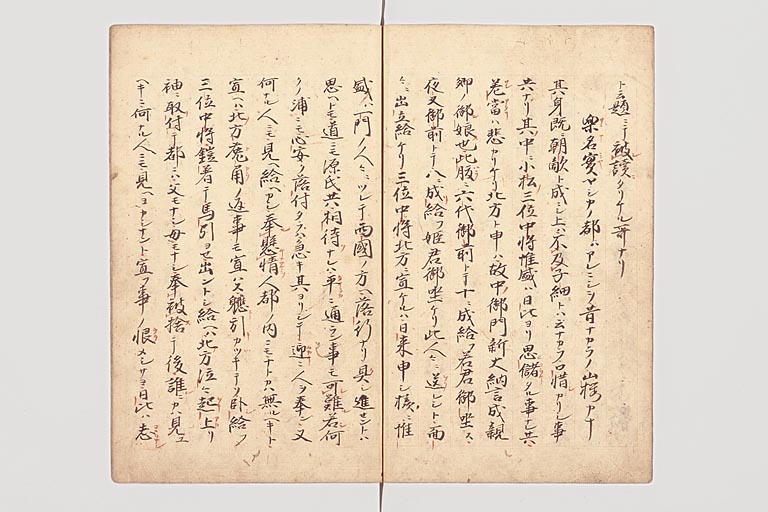 ト云題ニテ被読タリケル哥ナリ
楽名実ヤシカノ都ハアレニシヲ昔ナカラノ山桜カナ
其身既ニ朝敵ト成シ上ハ不及子細トハ云ナカラ口惜カリシ事
共ナリ其中ニ小松三位中将惟盛ハ日比ヨリ思儲タル事ナレ共
差當ハ悲カリケリ北方ト申ハ故中御門新大納言成親
卿ノ御娘也此腹ニ六代御前トテ十ニ成給フ若君御坐ス
夜叉御前トテ八ニ成給フ姫君御坐ケリ此人々ニ送レシト面々
ニ出立給ケリ三位中将北方ニ宣ケルハ日来申シ様ニ惟
盛ハ一門ノ人々ニツレテ西國ノ方ヘ落行ナリ具シ進セントハ
思ヘトモ道ニモ源氏共相待ナレハ平ニ通ラン事モ可難若何
クノ浦ニモ心安ク落付タラハ急キ其ヨリシテ迎ニ人ヲ奉シ又
何ナル人ニモ見ヘ給ヘカシ奉懸情人都ノ内ニモナトカハ無ルヘキト
宣ヘハ北方兎角ノ返事モ宣ハス軈引カツキテソ臥給フ
三位中将鎧着テ馬引ヨセ出ントシ給ヘハ北方泣々起上リ
袖ニ取付テ都ニハ父モナシ母モナシ奉被捨テ後誰ニカハ見ユ
ヘキニ何ナル人ニモ見ヘヨカシナント宣フ事ノ恨メシサヨ日比ハ志